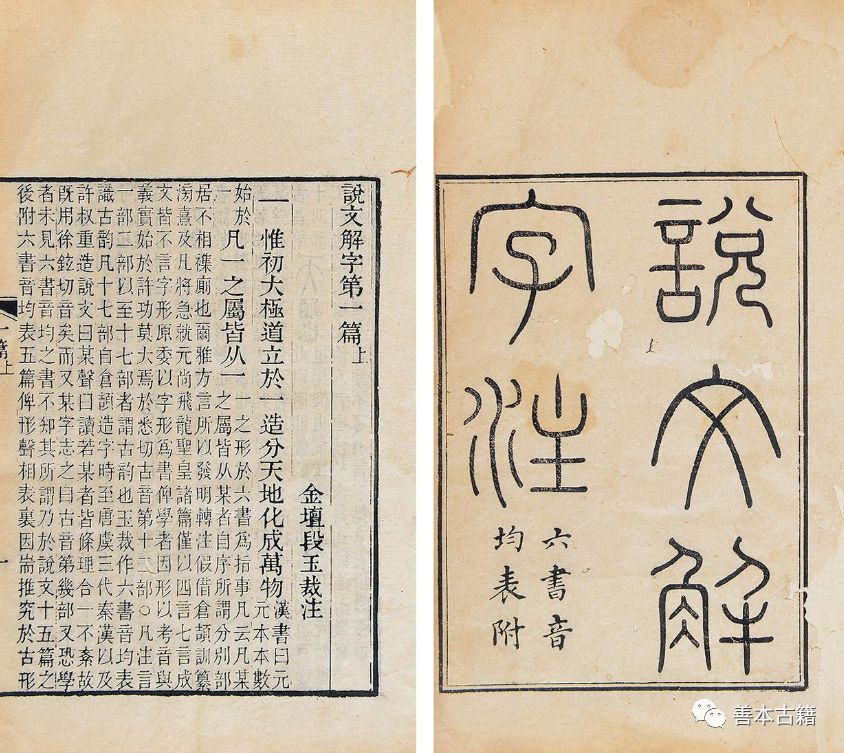 說文解
字注
六書音
均表附
說文解字第一篇上
金壇段玉裁注
一 惟初大極道立於一造分天地化成萬物漢書曰元元本本數
始於一 凡一之屬皆从一 一之形於六書爲指事凡云凡某之屬皆从某者自序所謂分別部
居不相襍廁也爾雅方言所以發明轉注假借倉頡訓纂
滂熹及凡將急就元尚飛龍聖皇諸篇僅以四言七言成
文皆不言字形原委以字形爲書俾學者因形以考音與
義實始於許功莫大焉於悉切古音第十二部○凡注言
一部二部以至十七部者謂古韵也玉裁作六書音均表
識古韵凡十七部自倉頡造字時至唐虞三代秦漢以及
許叔重造說文曰某聲曰讀若某者皆條理合一不紊故
既用徐鉉切音矣而又某字志之曰古音第幾部又恐學
者未見六書音均之書不知其所謂乃於說文十五篇之
後附六書音均表五篇俾形聲相表裏因耑推究於古形
一篇上
一
善本古籍